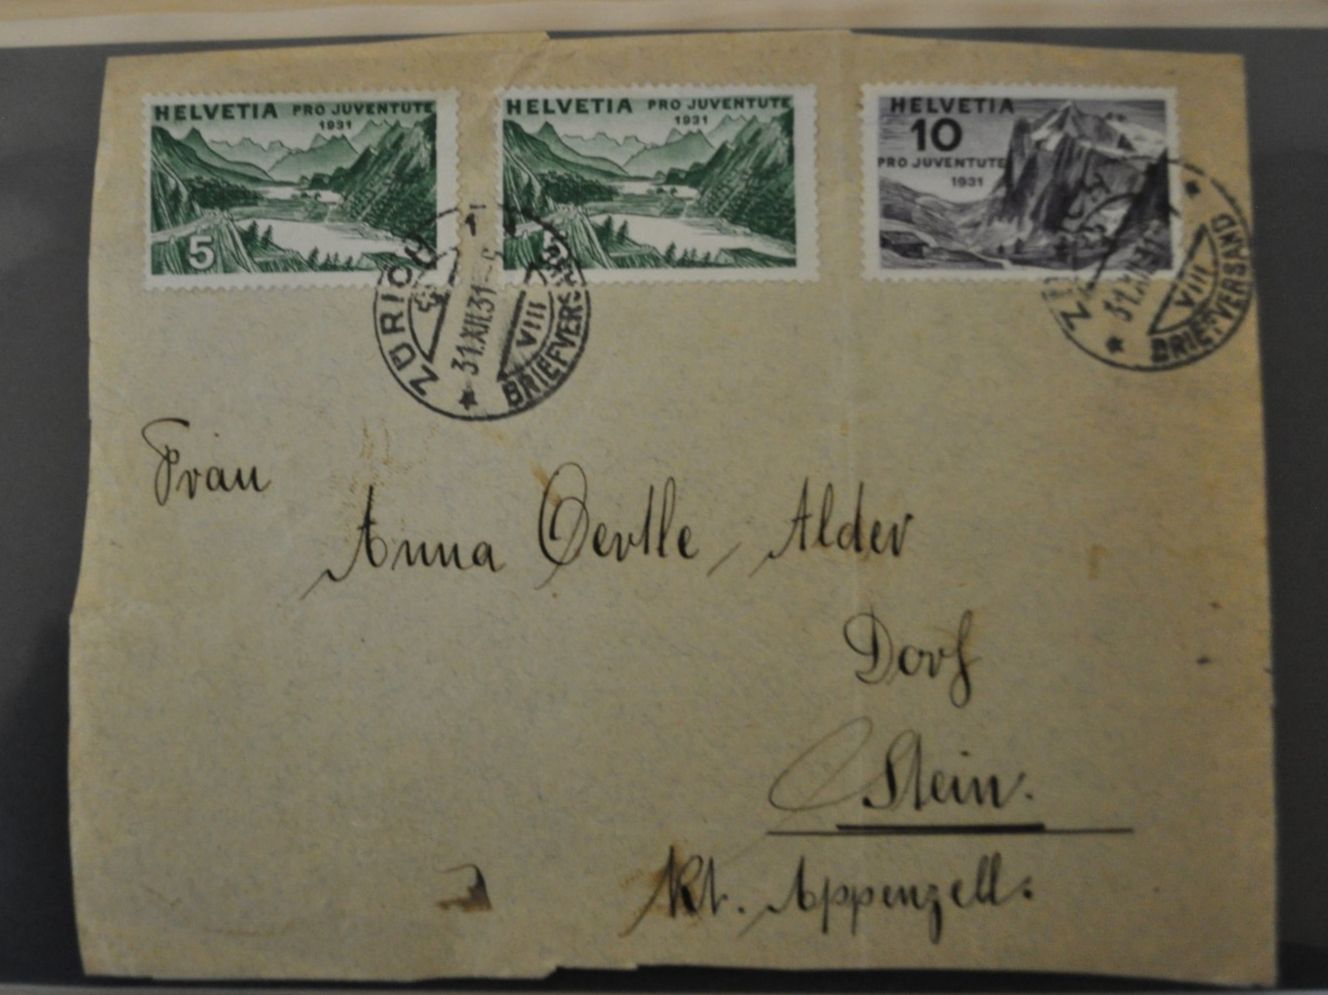 HELVETIA PRO JUVENTUTE
1931
5
HELVETIA PRO JUVENTUTE
1931
HELVETIA
10
PRO JUVENTUTE
1931
ZÜRICH 1
31.XII.31
VIII
BRIEFVERSAND
31.XII.31
VIII
BRIEFVERSAND
Frau
Anna Oertle, Alder
Dorf
Stein.
Kt. Appenzell.